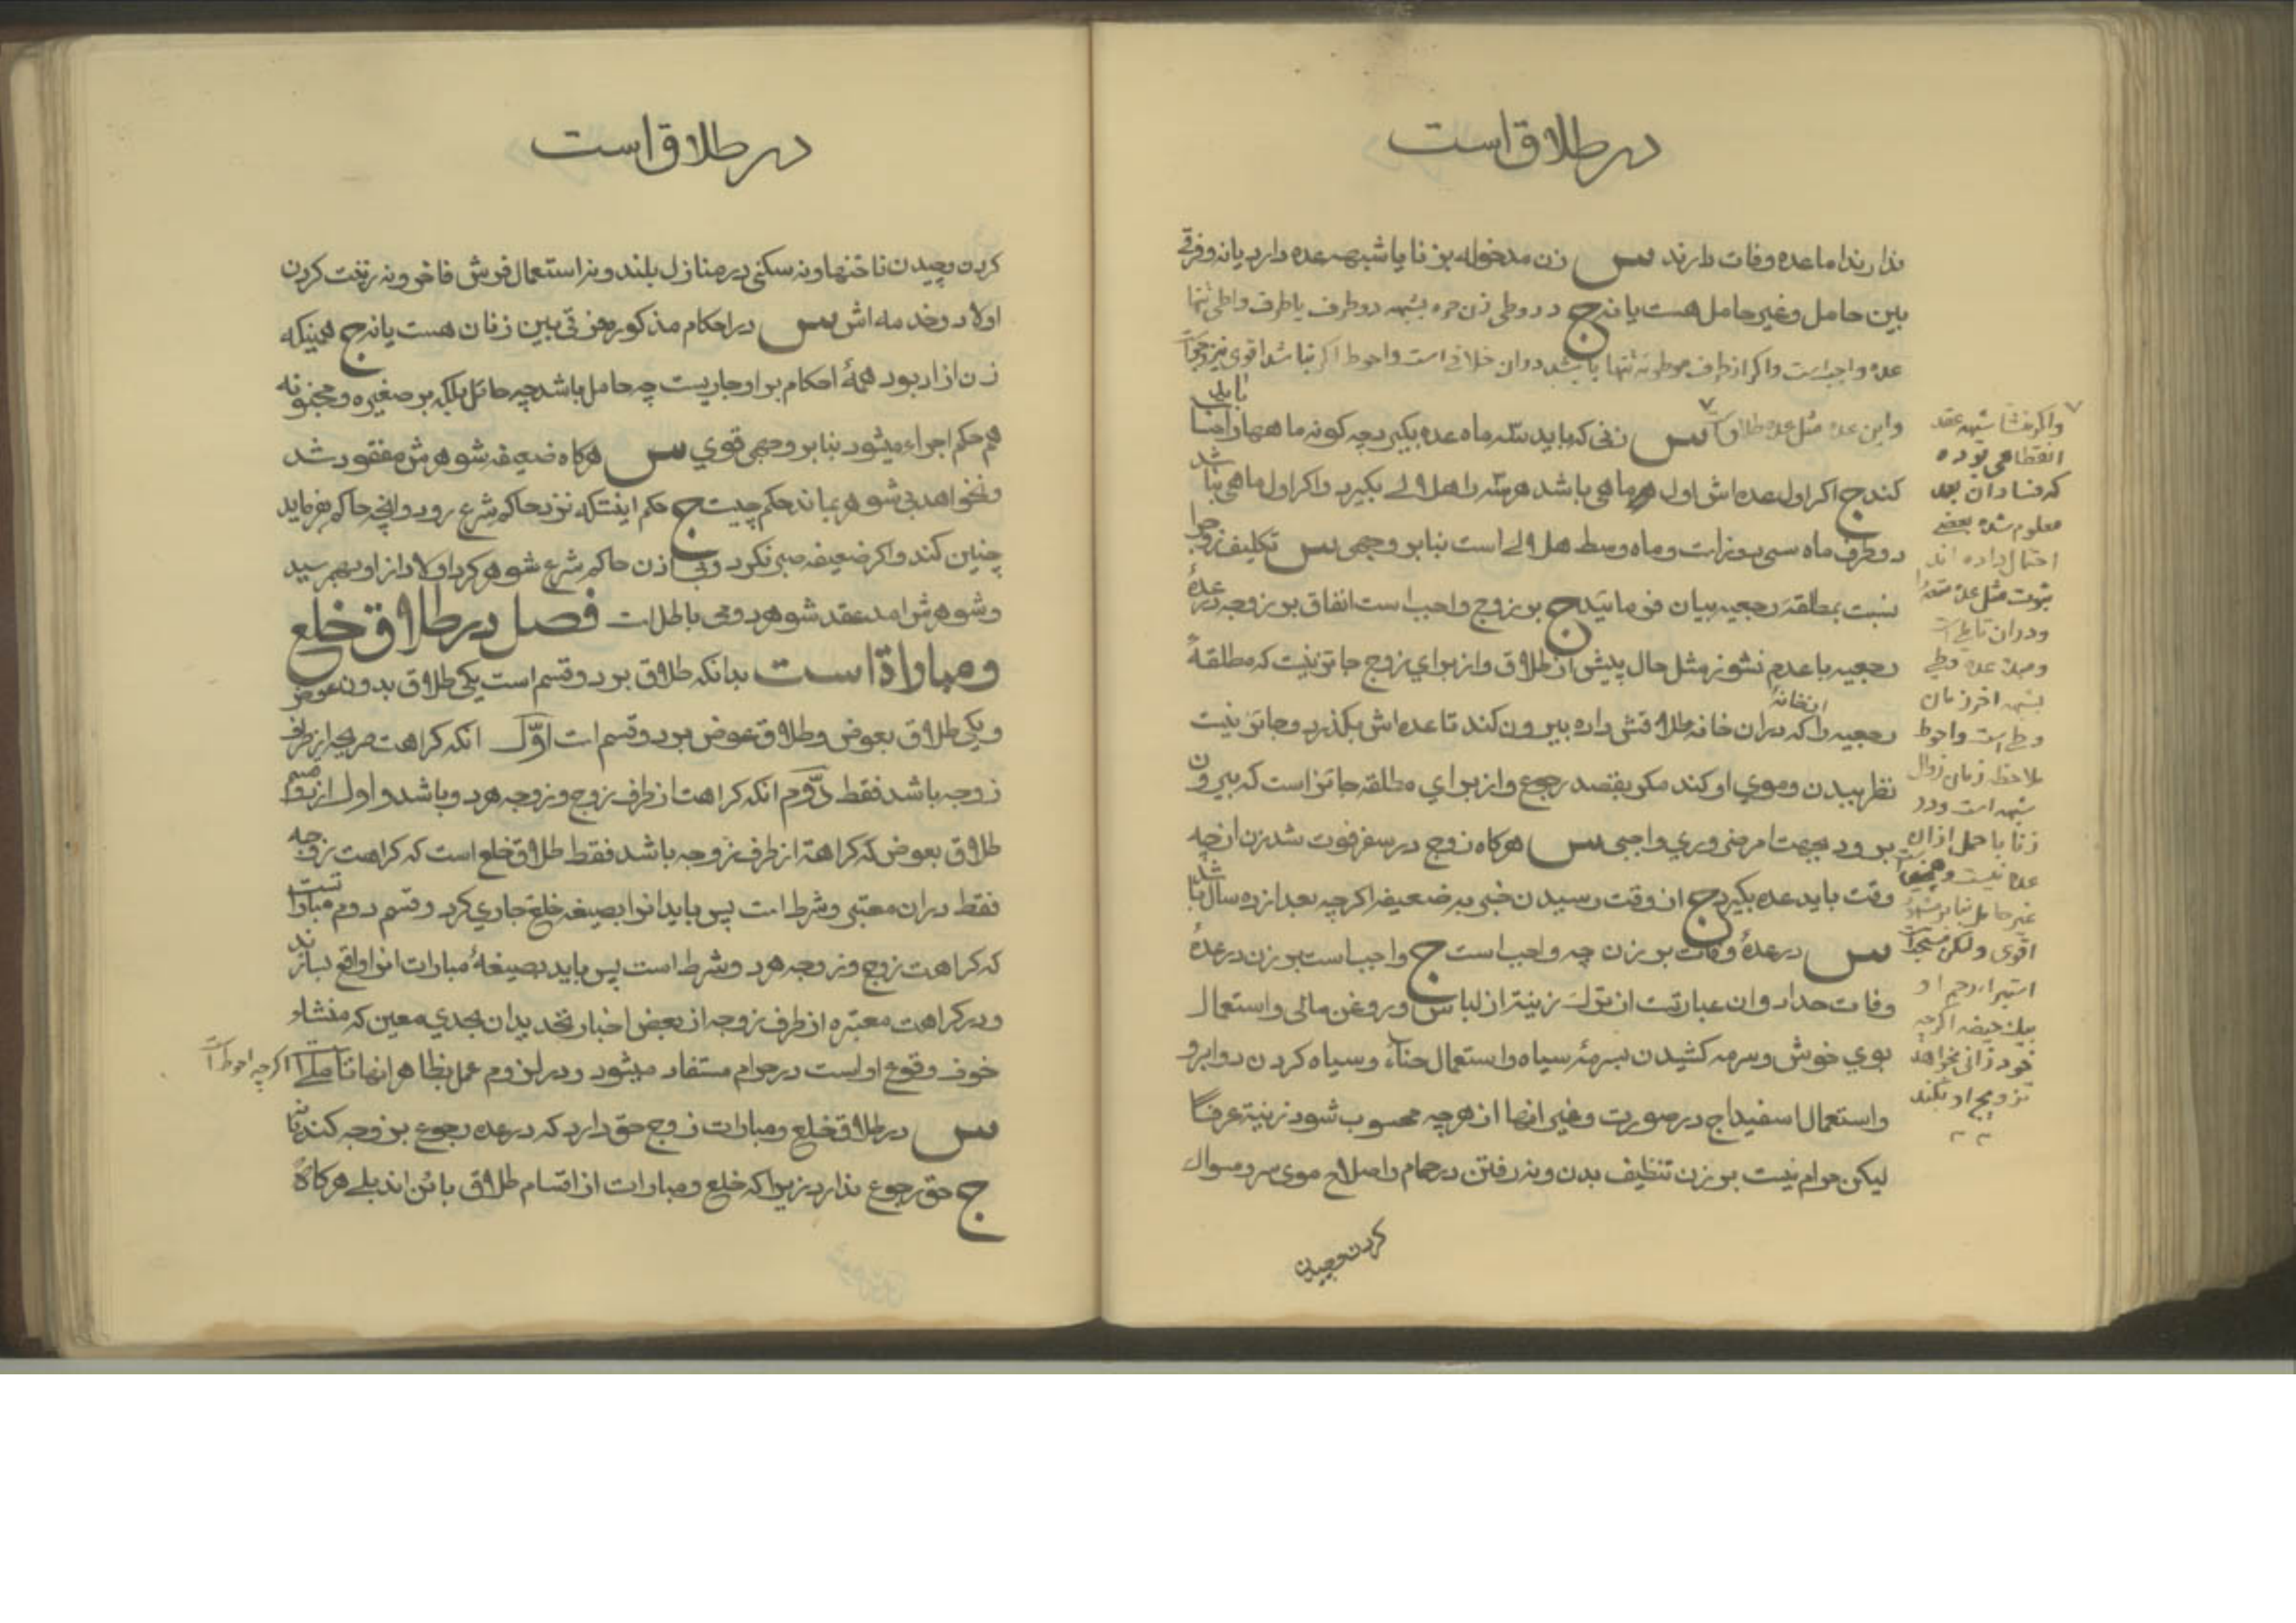 در طلاق است
ندارند اما عده وفات دارند س زن مدخوله بزنا یا شبهه عده دارد یا نه و فرقی
بین حامل و غیر حامل هست یا نه ج در وطی زن حره بشبهه دو طرف یا طرف واطی تنها
عده واجب است و اگر از طرف موطوئه تنها باشد در ان خلافی است و احوط اگر نباشد اقوی نیز وجوب است
و این عده مثل عده طلاق است س زنی که باید سه ماه عده بگیرد چه کونه ماهها را حساب باید
کند ج اکر اول عده اش اول هر ماهی باشد هر سه را هلالی بگیرد و اکر اول ماهی نباشد
دو طرف ماه سی روز است و ماه وسط هلالی است بنا بر وجهی س تکلیف زوج را
نسبت بمطلقه رجعیه بیان فرمائید ج بر زوج واجب است انفاق بر زوجه در عدهٔ
رجعیه با عدم نشوز مثل حال پیش از طلاق و از برای زوج جائز نیست که مطلقهٔ
رجعیه را که در ان خانه طلاقش داده بیرون کند تا عده اش بگذرد و جائز نیست
از خانهٔ
نظر ببدن و موی او کند مکر بقصد رجوع و از برای مطلقه جائز است که بیرون
برود بجهت امر ضروری واجبی س هرکاه زوج در سفر فوت شد زن از چه
وقت باید عده بگیرد ج از وقت رسیدن خبر بر ضعیفه اکرچه بعد از ده سال باشد
س در عدهٔ وفات بر زن چه واجب است ج واجب است بر زن در عدهٔ
وفات حداد و ان عبارتست از ترک زینة از لباس و روغن مالی و استعمال
بوی خوش و سرمه کشیدن بسرمهٔ سیاه و استعمال حناء و سیاه کردن دو ابرو
و استعمال اسفیداج در صورت و غیر انها از هرچه محسوب شود زینة عرفا
لیکن حرام نیست بر زن تنظیف بدن و نه رفتن در حمام و اصلاح موی سر و مسواک
کردن و چیدن
و اکر منشا شبهه عقد
انقطاعی بوده
که فساد ان بعد
معلوم شده بعضی
احتمال داده اند
ثبوت مثل عده متعه را
و در ان تامل است
و مبدء عده وطی
بشبهه اخر زمان
وطی است و احوط
ملاحظه زمان زوال
شبهه است و در
زنا با حمل از ان
عده نیست و همچنین
غیر حامل بنا بر مشهور
اقوی و لکن مستحب است
استبراء رحم او
بیک حیضه اکرچه
خود زانی بخواهد
تزویج او بکند
در طلاق است
کردن و چیدن ناخنها و نه سکنی در منازل بلند و نه استعمال فروش فاخر و نه زینت کردن
اولاد و خدمه اش س در احکام مذکوره فرقی بین زنان هست یا نه ج همینکه
زن ازاد بود همهٔ احکام بر او جاریست چه حامل باشد چه حائل بلکه بر صغیره و مجنونه
هم حکم اجراء میشود بنا بر وجهی قوی س هرکاه ضعیفه شوهرش مفقود شد
و نخواهد بی شوهر بماند حکم چیست ج حکم اینست که نزد حاکم شرع رود و انچه حاکم فرماید
چنین کند و اکر ضعیفه صبر نکرد و بی اذن حاکم شرع شوهر کرد اولاد از او بهم رسید
و شوهرش امد عقد شوهر دومی باطل است فصل در طلاق خلع
و مباراة است بدانکه طلاق بر دو قسم است یکی طلاق بدون عوض
و یکی طلاق بعوض و طلاق بعوض بر دو قسم است اوّل انکه کراهت صریحه از طرف
زوجه باشد فقط دوّم انکه کراهت از طرف زوج و زوجه هر دو باشد و اول از دو قسم
طلاق بعوض که کراهة از طرف زوجه باشد فقط طلاق خلع است که کراهت زوجه
فقط در ان معتبر و شرط است پس باید انرا بصیغه خلع جاری کرد و قسم دوم مبارات است
که کراهت زوج و زوجه هر دو شرط است پس باید بصیغهٔ مبارات انرا واقع بسازند
و در کراهت معتبره از طرف زوجه از بعض اخبار تحدید ان بحدی معین که منشاء
خوف وقوع او است در حرام مستفاد میشود و در لزوم عمل بظاهر انها تاملی است اکرچه احوط است
س در طلاق خلع و مبارات زوج حق دارد که در عده رجوع بزوجه کند یا نه
ج حق رجوع ندارد زیرا که خلع و مبارات از اقسام طلاق بائن اند بلی هرکاه